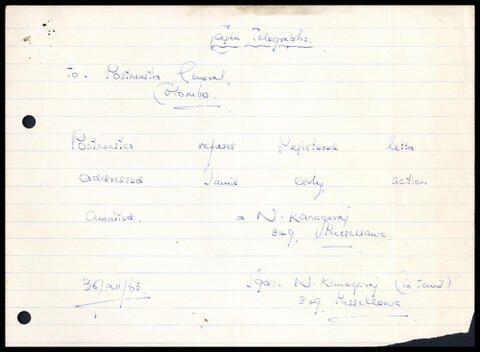 Telegraphs.
To. Postmaster General
Colombo.
Postmaster refused Registered letter
addressed Tamil only, action
Awaited. = N. Kanagaraj
349, Pussellawa.
Sgd:. N. Kanagaraj (in Tamil)
349 Pussellawa